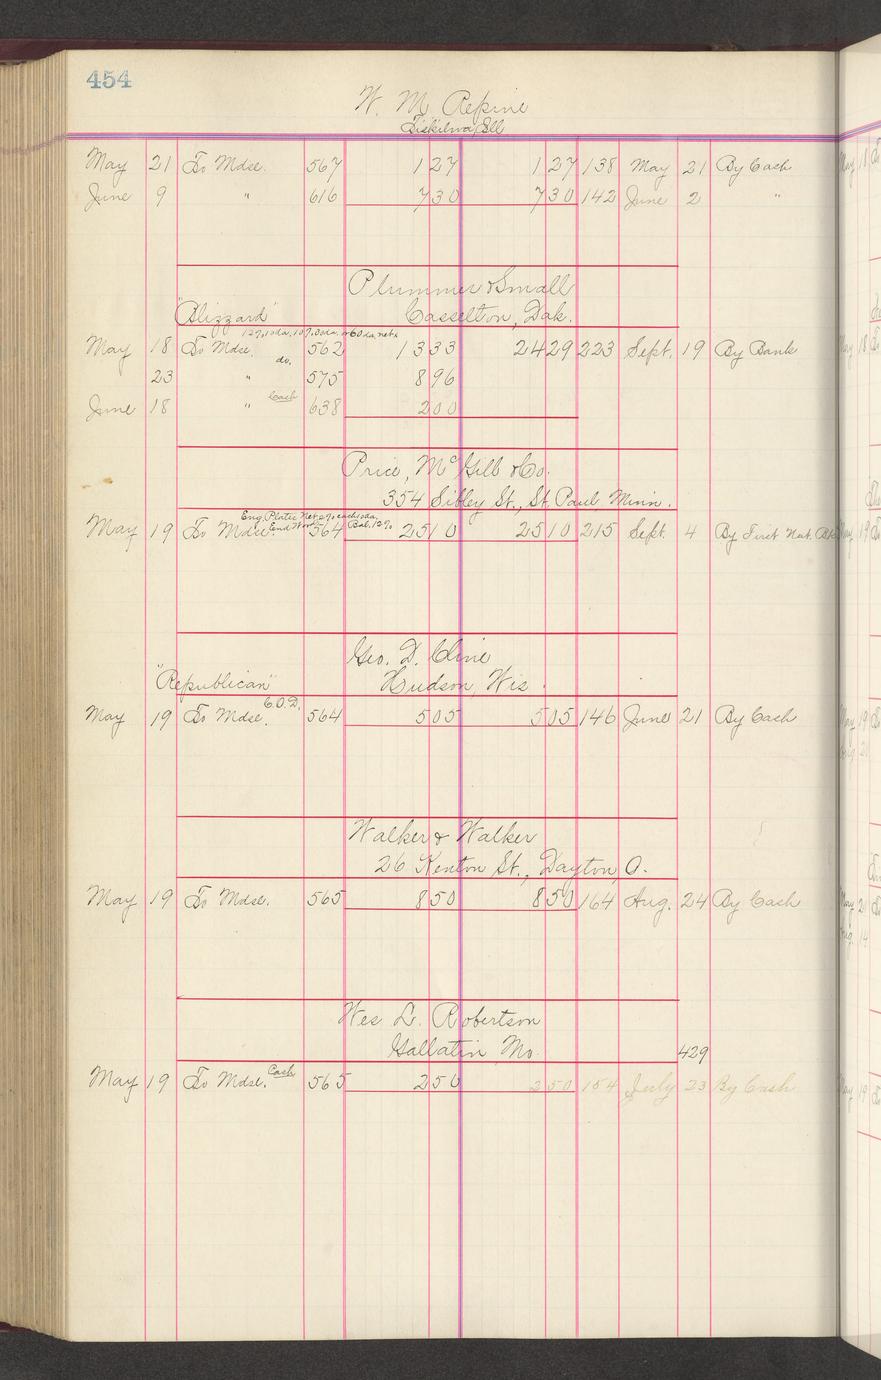 454
W. M. Repine
Tiskilwa, Ill
May 21 To Mdse. 567 1 27 1 27 138 May 21 By Cash
June 9 " 616 7 30 7 30 142 June 2 "
Plummer & Small
"Blizzard" Casselton, Dak.
May 18 To Mdse. 562 13 33 24 29 223 Sept. 19 By Bank
do.
23 " 575 8 96
Cash
June 18 " 638 2 00
Price, McGill & Co.
354 Sibley St., St. Paul Minn.
Eng. Plates Net
May 19 To Mdse. End Wood 564 Bal. 12% 25 10 25 10 215 Sept. 4 By First Nat. Bk
Geo. D. Cline
"Republican" Hudson, Wis.
C.O.D.
May 19 To Mdse. 564 5 05 5 05 146 June 21 By Cash
Walker & Walker
26 Kenton St., Dayton, O.
May 19 To Mdse. 565 8 50 8 50 164 Aug. 24 By Cash
Wes L. Robertson
Gallatin Mo. 429
May 19 To Mdse. Cash 565 2 50 2 50 154 July 23 By Cash